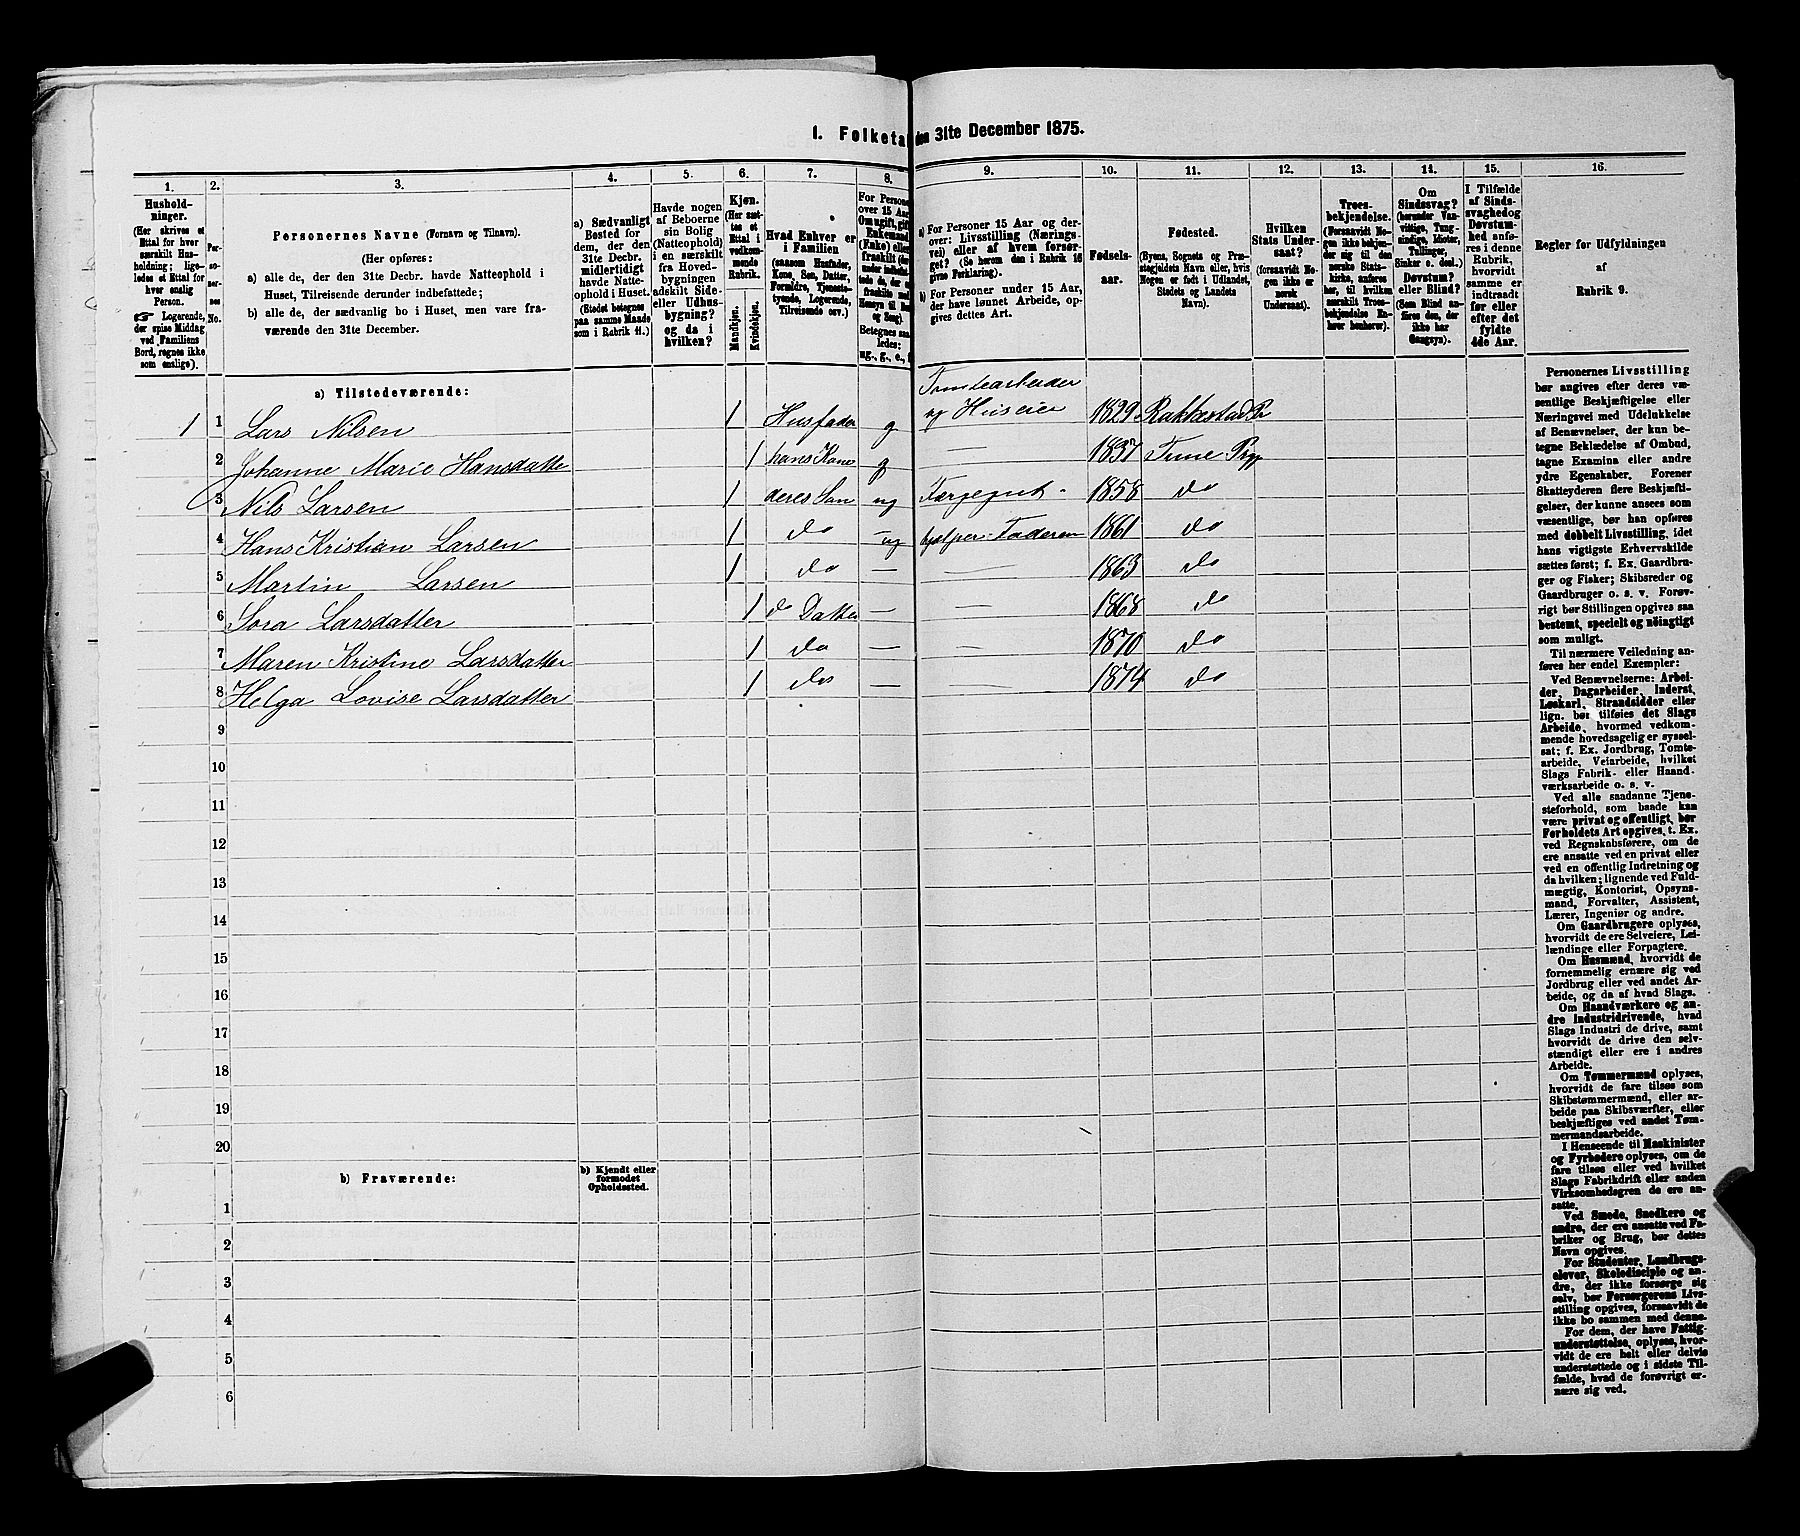 1. Folketal den 31te December 1875.
1. 2. 3. 4. 5. 6. 7. 8. 9. 10. 11. 12. 13. 14. 15. 16.
Hushold-
ninger.
(Her skrives et
Ettal for hver
særskilt Hus-
holdning; lige-
ledes et Ettal for
hver enslig
Person.
☞ Logerende,
der spise Middag
ved Familiens
Bord, regnes ikke
som enslige).
Per-
so-
ner-
nes
No.
Personernes Navne (Fornavn og Tilnavn).
(Her opføres:
a) alle de, der den 31te Decbr. havde Natteophold i
Huset, Tilreisende derunder indbefattede;
b) alle de, der sædvanlig bo i Huset, men vare fra-
værende den 31te December.
a) Sædvanligt
Bosted for
dem, der den
31te Decbr.
midlertidigt
havde Natte-
ophold i Huset.
(Stedet betegnes
paa samme Maade
som i Rubrik 11.)
Havde nogen
af Beboerne
sin Bolig
(Natteophold)
i en særskilt
fra Hoved-
bygningen
adskilt Side-
eller Udhus-
bygning?
og da i
hvilken?
Kjøn.
(Her sæt-
tes et
Ettal i
vedkom-
mende
Rubrik.
Mandkjøn.
Kvindekjøn.
Hvad Enhver er
i Familien
(saasom Husfader,
Kone, Søn, Datter,
Forældre, Tjeneste-
tyende, Logerende,
Tilreisende osv.)
For Persone
over 15 Aar
Om ugift, gift
Enkemand
(Enke) eller
fraskilt (der
Betegnes saa
ledes:
ug., g., e.,
a) For Personer 15 Aar og der-
over: Livsstilling (Nærings
vei) eller af hvem forsør-
get? (Se herom den i Rubrik 16
givne Forklaring).
b) For Personer under 15 Aar,
der have lønnet Arbeide, op-
gives dettes Art.
Fødsels-
aar.
Fødested.
(Byens, Sognets og Præ-
stegjeldets Navn eller, hvis
Nogen er født i Udlandet,
Stedets og Landets
Navn).
Hvilken
Stats Under-
saat?
(forsaavidt No-
gen ikke er
norsk
Undersaat).
Troes-
bekjendelse.
(Forsaavidt No-
gen ikke bekjen-
der sig til den
norske Stats-
kirke, anføres
her, til hvilken
særskilt Troes-
bekjendelse En-
hver henhører).
Om
Sindssvag?
(herunder Van-
vittige, Tung-
sindige, Idioter,
Tullinger,
Sinker o. desl.)
Døvstum?
eller Blind?
(Som Blind an-
føres den, der
ikke har
Gangsyn).
I Tilfælde
af Sinds-
svaghed og
Døvstum-
hed anfø-
res i denne
Rubrik,
hvorvidt
samme er
indtraadt
før eller
efter det
fyldte
4de Aar.
Regler for Udfyldningen
af
Rubrik 9.
a) Tilstedeværende:
Tomtearbeider
1 1 Lars Nilsen 1 Husfader g og Huseier 1829 Rakkestad Pr
2 Johanne Marie Hansdatte 1 hans Kone g — 1837 Tune Prgj
3 Nils Larsen 1 deres Søn ug Færgegut 1858 do
4 Hans Kristian Larsen 1 do ug hjelper Faderen 1861 do
5 Martin Larsen 1 do — — 1863 do
6 Lora Larsdatter 1 do Datter — — 1868 do
7 Maren Kristine Larsdatter 1 do — — 1870 do
8 Helga Lovise Larsdatter 1 do — — 1874 do
9
10
11
12
13
14
15
16
17
18
19
20
b) Fraværende:
b) Kjendt eller
formodet
Opholdssted.
1
2
3
4
5
6
Personernes Livsstilling
bør angives efter deres væ-
sentlige Beskjæftigelse eller
Næringsvei med Udelukkelse
af Benævnelser, der kun be-
tegne Beklædelse af Ombud,
tagne Examina eller andre
ydre Egenskaber. Forener
Skatteyderen flere Beskjæfti-
gelser, der kunne ansees som
væsentlige, bør han opføres
med dobbelt Livsstilling, idet
hans vigtigste Erhvervskilde
sættes først; f. Ex. Gaardbru-
ger og Fisker; Skibsreder og
Gaardbruger o. s. v. Forøv-
rigt bør Stillingen opgives saa
bestemt, specielt og nöiagtigt
som muligt.
Til nærmere Veiledning an-
føres her endel Exempler:
Ved Benævnelserne: Arbei-
der, Dagarbeider, Inderst,
Løskarl, Strandsidder eller
lign. bør tilføies det Slags
Arbeide, hvormed vedkom-
mende hovedsagelig er syssel-
sat; f. Ex. Jordbrug, Tomte-
arbeide, Veiarbeide, hvilket
Slags Fabrik- eller Haand-
værksarbeide o. s. v.
Ved alle saadanne Tjene-
steforhold, som baade kan
være privat og offentligt, bør
Forholdets Art opgives, t. Ex.
ved Regnskabsførere, om de
ere ansatte ved en privat eller
ved en offentlig Indretning og
da hvilken; lignende ved Fuld-
mægtig, Kontorist, Opsyns-
mand, Forvalter, Assistent,
Lærer, Ingeniør og andre.
Om Gaardbrugere oplyses,
hvorvidt de ere Selveiere, Lei-
lændinge eller Forpagtere.
Om Husmænd, hvorvidt de
fornemmelig ernære sig ved
Jordbrug eller ved andet Ar-
beide, og da af hvad Slags.
Om Haandværkere og an-
dre Industridrivende, hvad
Slags Industri de drive, samt
hvorvidt de drive den selv-
stændigt eller ere i andres
Arbeide.
Om Tømmermænd oplyses,
hvorvidt de fare tilsøs som
Skibstømmermænd, eller ar-
beide paa Skibsværfter, eller
beskjæftiges ved andet Tøm-
mermandsarbeide.
I Henseende til Maskinister
og Fyrbødere oplyses, om de
fare tilsøs eller ved hvilket
Slags Fabrikdrift eller anden
Virksomhedsgren de ere an-
satte.
Ved Smede, Snedkere og
andre, der ere ansatte ved Fa-
briker og Brug, bør dettes
Navn opgives.
For Studenter, Landbrugs-
elever, Skoledisciple og an-
dre, der ikke forsørge sig
selv, bør Forsørgerens Livs-
stilling opgives, forsaavidt de
ikke bo sammen med denne.
For dem, der have Fattig-
understøttelse, oplyses, hvor-
vidt de ere helt eller delvis
understøttede og i sidste Til-
fælde, hvad de forøvrigt er-
nære sig ved.